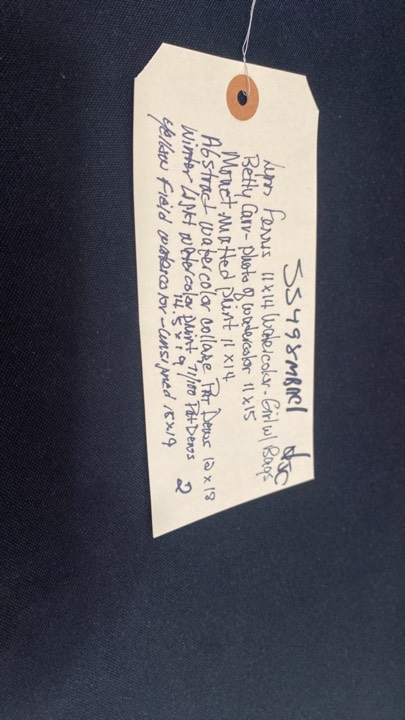 55498MBM1
Lynn Ferris 11x14 Watercolor - Girl w/ Bags
Betty Carr - photo of watercolor 11x15
Monet matted print 11x14
Abstract watercolor collage Pat Dews 12x18
Winter Light watercolor print 71/100 Pat Dews
14.5x19
Yellow Field watercolor - unsigned 15x19
2